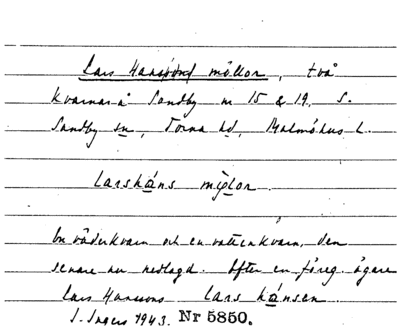 Lars Hanssons möllor, två
kvarnar å Sandby nr 15 & 19, S.
Sandby sn, Torna hd, Malmöhus l.
larshåns mÿlor
En väderkvarn och en vattenkvarn, den
senare nu nedlagd. Efter en föreg. ägare
Lars Hanssons lars hånsen.
I. Ingers 1943. Nr 5850.